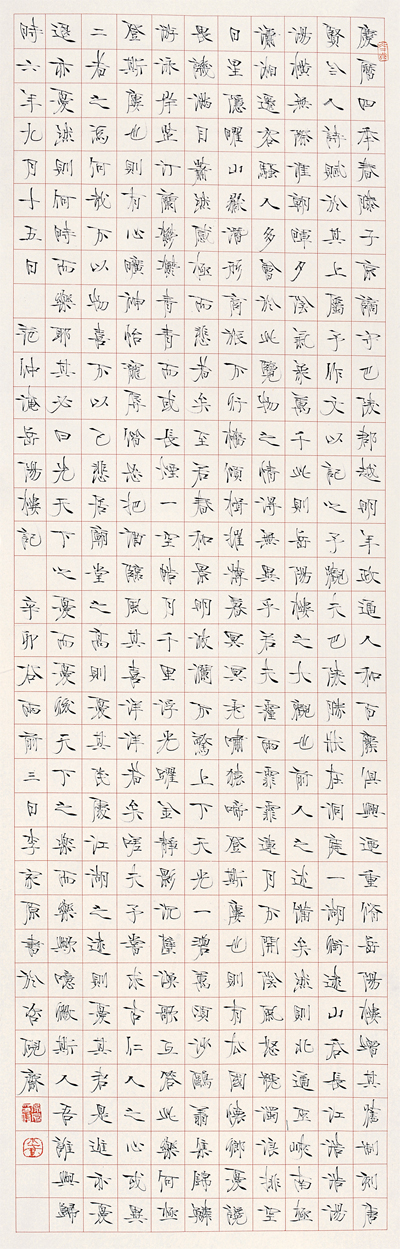 慶曆四年春滕子京謫守巴陵郡越明年政通人和百廢具興迺重脩岳陽樓增其舊制刻唐
賢今人詩賦於其上屬予作文以記之予觀夫巴陵勝狀在洞庭一湖銜遠山吞長江浩浩湯
湯橫無際涯朝暉夕陰氣象萬千此則岳陽樓之大觀也前人之述備矣然則北通巫峽南極
瀟湘遷客騷人多會於此覽物之情得無異乎若夫霪雨霏霏連月不開陰風怒號濁浪排空
日星隱曜山嶽潛形商旅不行檣傾楫摧薄暮冥冥虎嘯猿啼登斯樓也則有去國懷鄉憂讒
畏譏滿目蕭然感極而悲者矣至若春和景明波瀾不驚上下天光一碧萬頃沙鷗翔集錦鱗
游泳岸芷汀蘭郁郁青青而或長煙一空皓月千里浮光躍金靜影沉璧漁歌互答此樂何極
登斯樓也則有心曠神怡寵辱偕忘把酒臨風其喜洋洋者矣嗟夫予嘗求古仁人之心或異
二者之為何哉不以物喜不以己悲居廟堂之高則憂其民處江湖之遠則憂其君是進亦憂
退亦憂然則何時而樂耶其必曰先天下之憂而憂後天下之樂而樂歟噫微斯人吾誰與歸
時六年九月十五日 范仲淹岳陽樓記 辛卯谷雨前三日李家原書於 齋